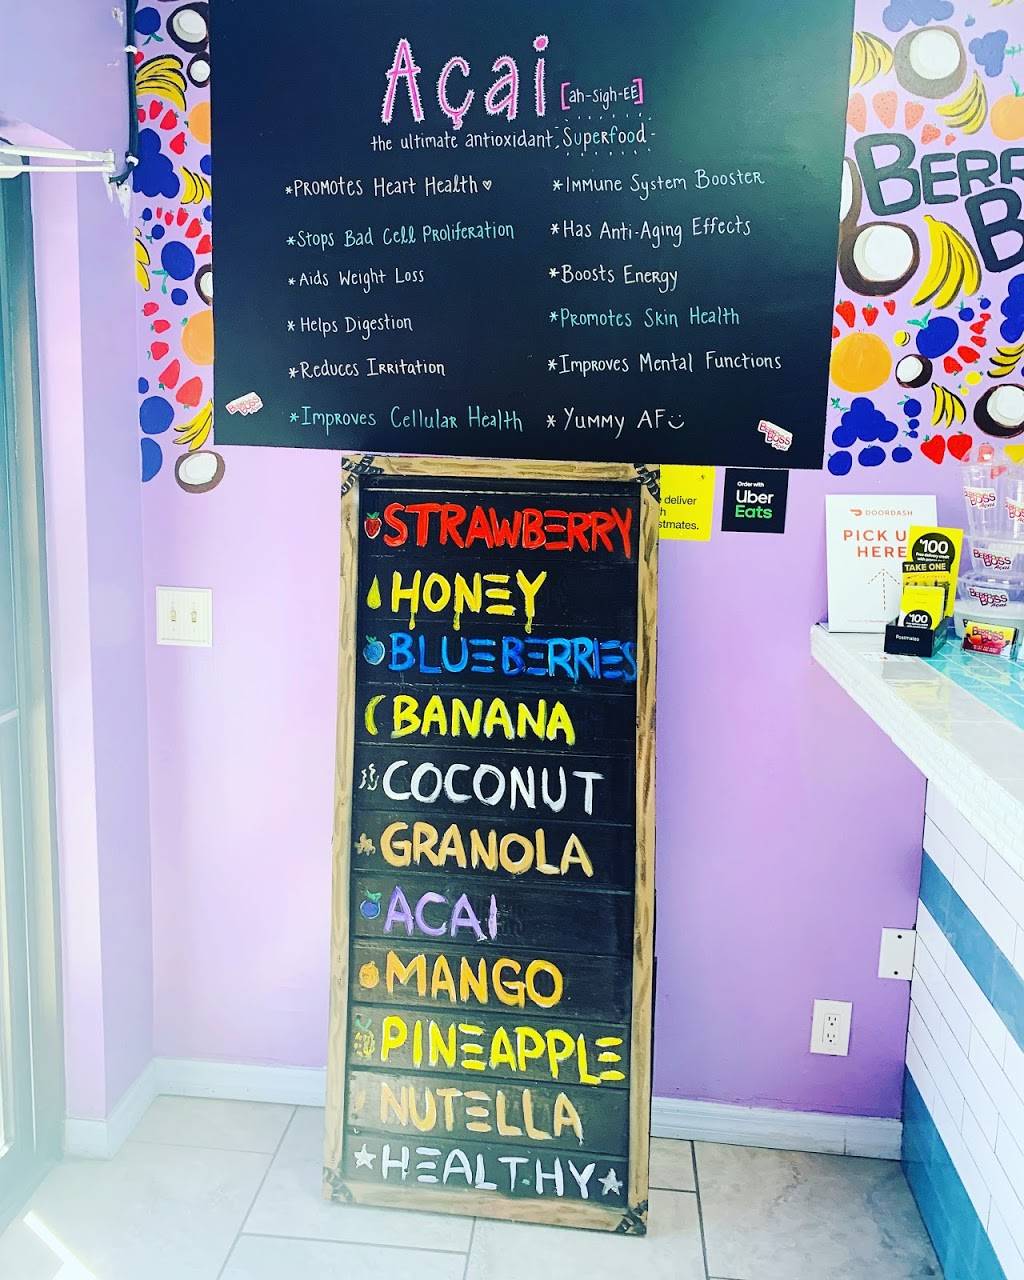 Açai [ah-sigh-EE]
the ultimate antioxidant, Superfood
*Promotes Heart Health ♥
*Stops Bad Cell Proliferation
*Aids Weight Loss
*Helps Digestion
*Reduces Irritation
*Improves Cellular Health
*Immune System Booster
*Has Anti-Aging Effects
*Boosts Energy
*Promotes Skin Health
*Improves Mental Functions
*Yummy AF
BERR
B
BERRY BOSS Açai
BERRY BOSS Açai
deliver
Order with
Uber
Eats
DOORDASH
PICK U
HERE
$100
TAKE ONE
$100
Postmates
BERRY BOSS Açai
BERRY BOSS Açai
BERRY BOSS
STRAWBERRY
HONEY
BLUEBERRIES
BANANA
COCONUT
GRANOLA
ACAI
MANGO
PINEAPPLE
NUTELLA
★HEALTHY★